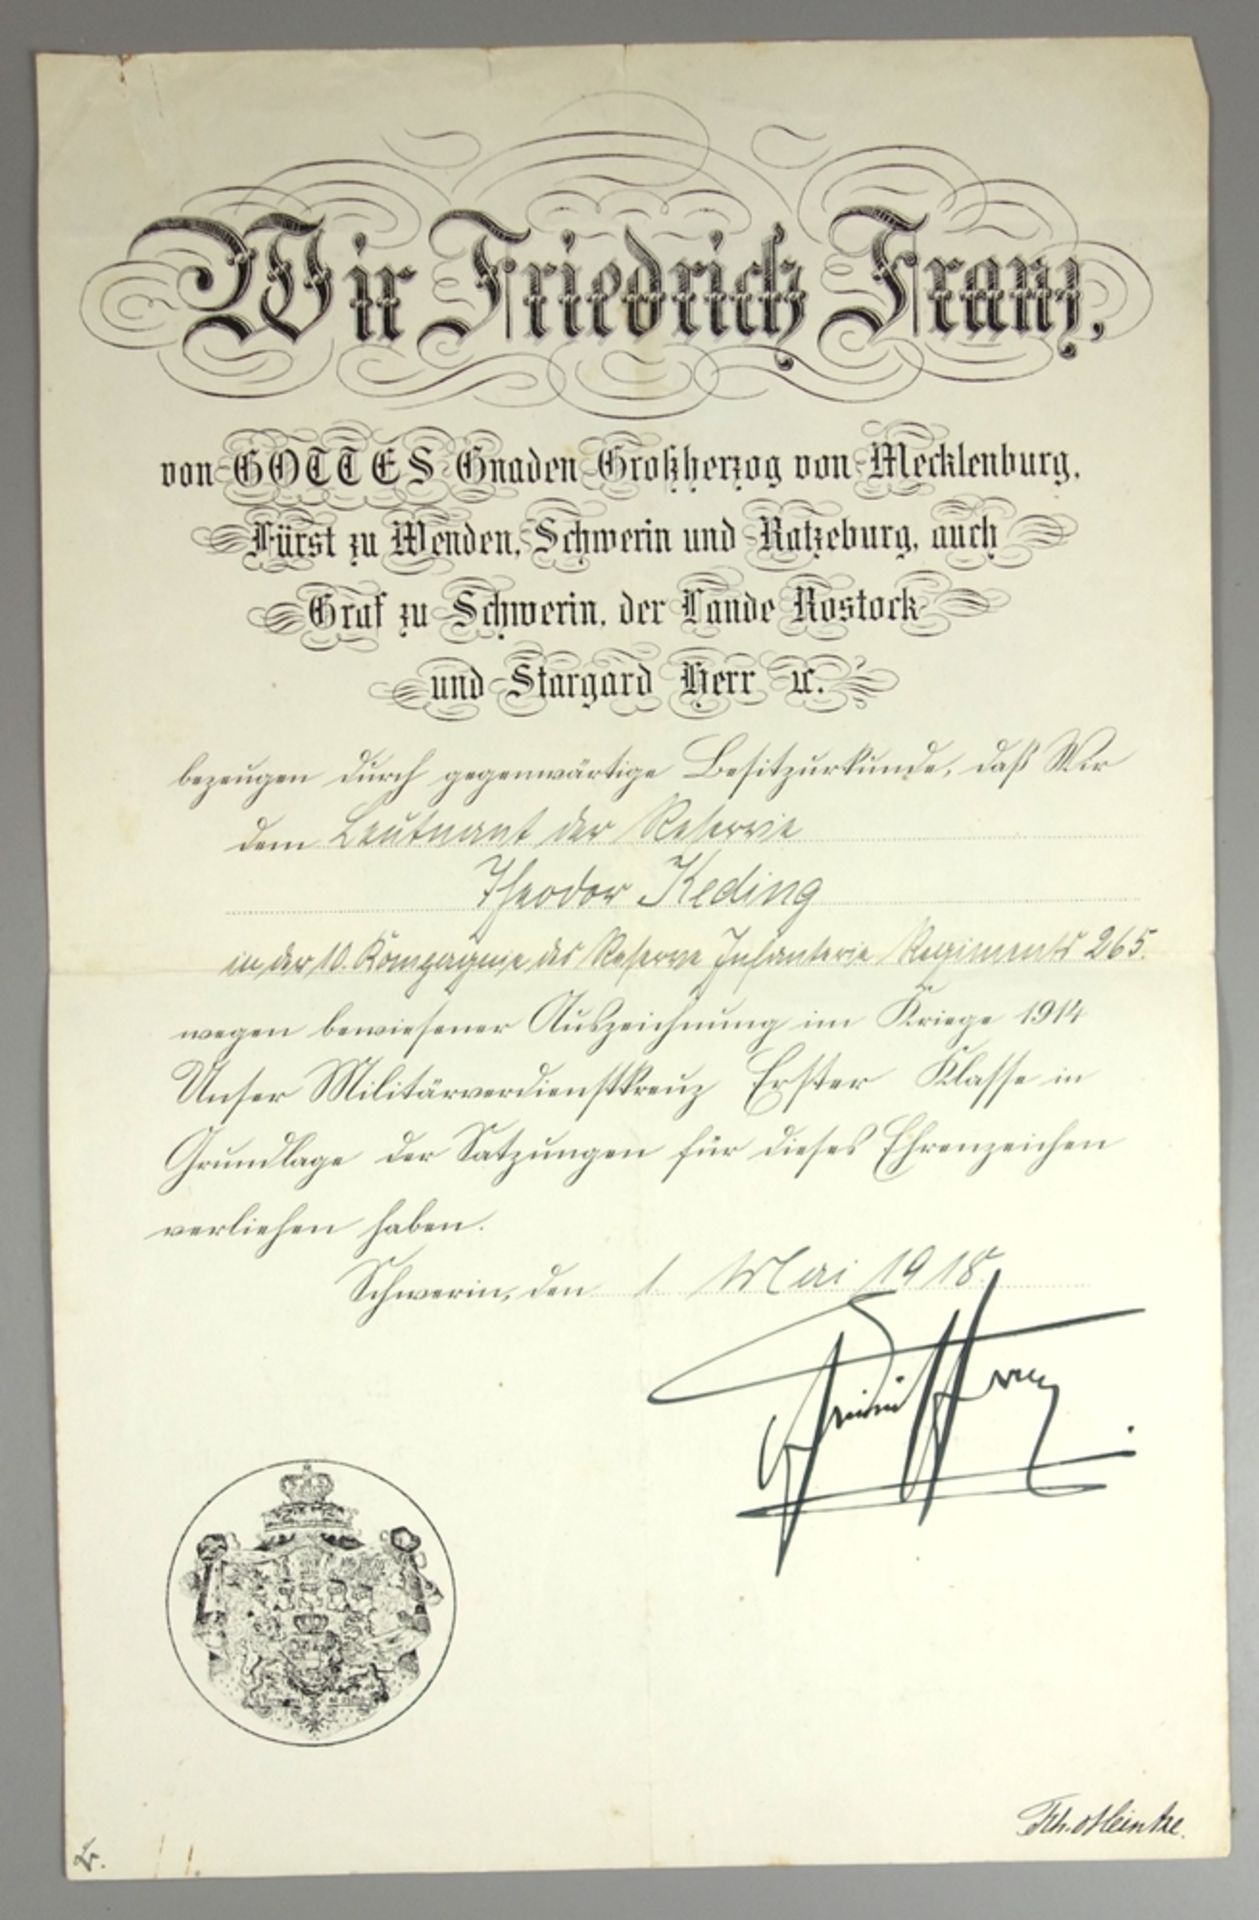 Wir Friedrich Franz,
von GOTTES Gnaden Großherzog von Mecklenburg,
Fürst zu Wenden, Schwerin und Ratzeburg, auch
Graf zu Schwerin, der Lande Rostock
und Stargard Herr ꝛc.
bezeugen durch gegenwärtige Besitzurkunde, daß Wir
dem Leutnant der Reserve
Theodor Keding
in der 10. Kompagnie des Reserve Infanterie Regiments 265.
wegen bewiesener Auszeichnung im Kriege 1914
Unser Militärverdienstkreuz Erster Klasse in
Grundlage der Satzungen für dieses Ehrenzeichen
verliehen haben.
Schwerin, den 1. Mai 1918.
Friedrich Franz